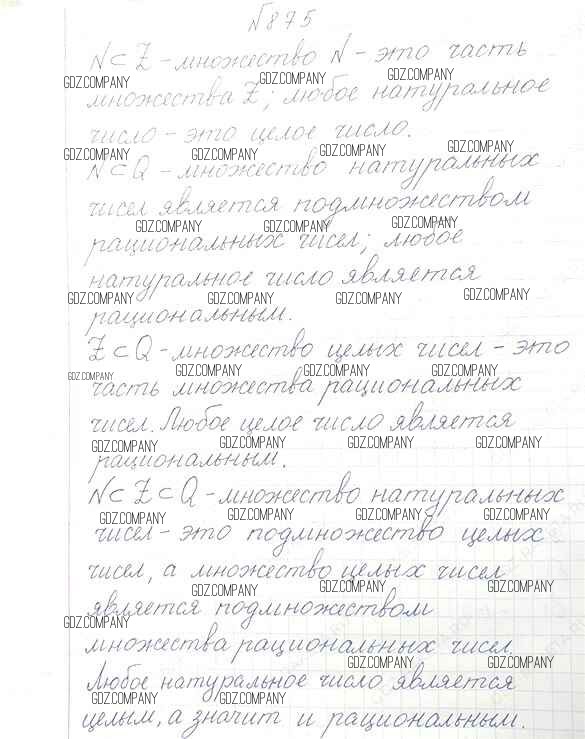 №875
N ⊂ Z - множество N - это часть
GDZ.COMPANY GDZ.COMPANY GDZ.COMPANY
множества Z; любое натуральное
число - это целое число.
GDZ.COMPANY GDZ.COMPANY GDZ.COMPANY GDZ.COMPANY
N ⊂ Q - множество натуральных
чисел является подмножеством
GDZ.COMPANY GDZ.COMPANY GDZ.COMPANY
рациональных чисел; любое
натуральное число является
GDZ.COMPANY GDZ.COMPANY GDZ.COMPANY GDZ.COMPANY
рациональным.
Z ⊂ Q - множество целых чисел - это
GDZ.COMPANY GDZ.COMPANY GDZ.COMPANY GDZ.COMPANY
часть множества рациональных
чисел. Любое целое число является
GDZ.COMPANY GDZ.COMPANY GDZ.COMPANY GDZ.COMPANY
рациональным.
N ⊂ Z ⊂ Q - множество натуральных
GDZ.COMPANY GDZ.COMPANY GDZ.COMPANY GDZ.COMPANY
чисел - это подмножество целых
чисел, а множество целых чисел
GDZ.COMPANY GDZ.COMPANY GDZ.COMPANY
является подмножеством
GDZ.COMPANY
множества рациональных чисел.
GDZ.COMPANY GDZ.COMPANY
Любое натуральное число является
GDZ.COMPANY GDZ.COMPANY
целым, а значит и рациональным.